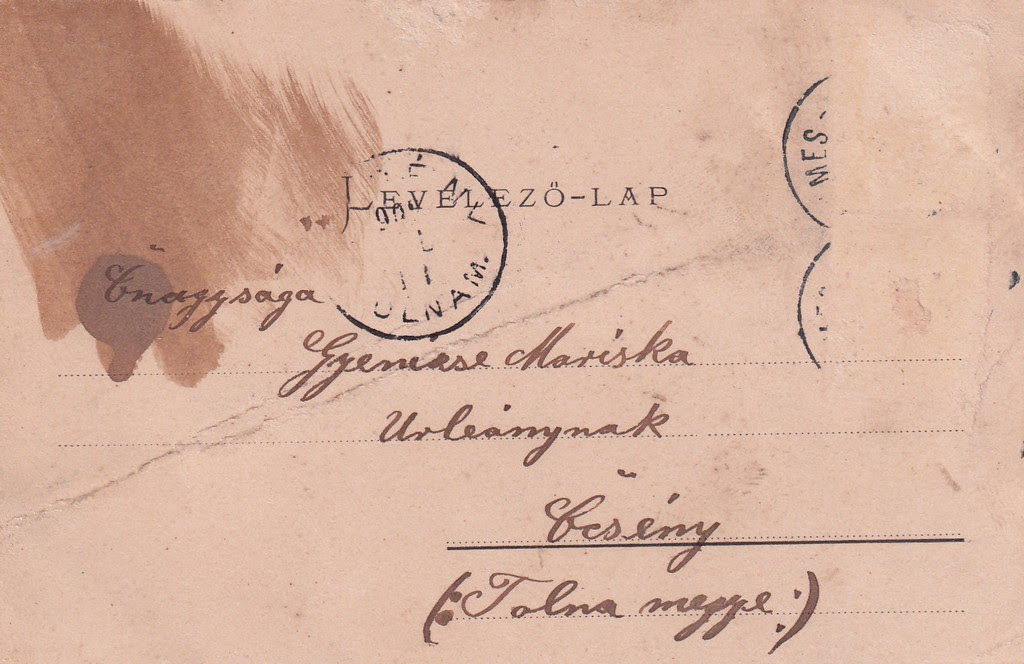 LEVELEZŐ-LAP
MES
Őnagysága
Gyenisse Mariska
Urleánynak
Őcsény
(: Tolna megye :)